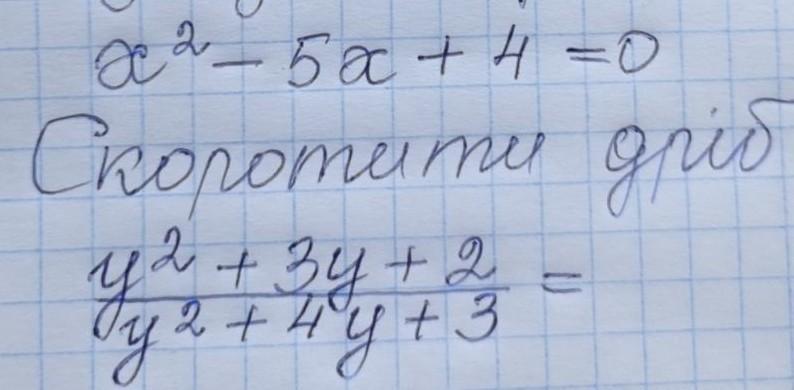 x² - 5x + 4 = 0
Скоротити дріб
y² + 3y + 2 =
y² + 4y + 3